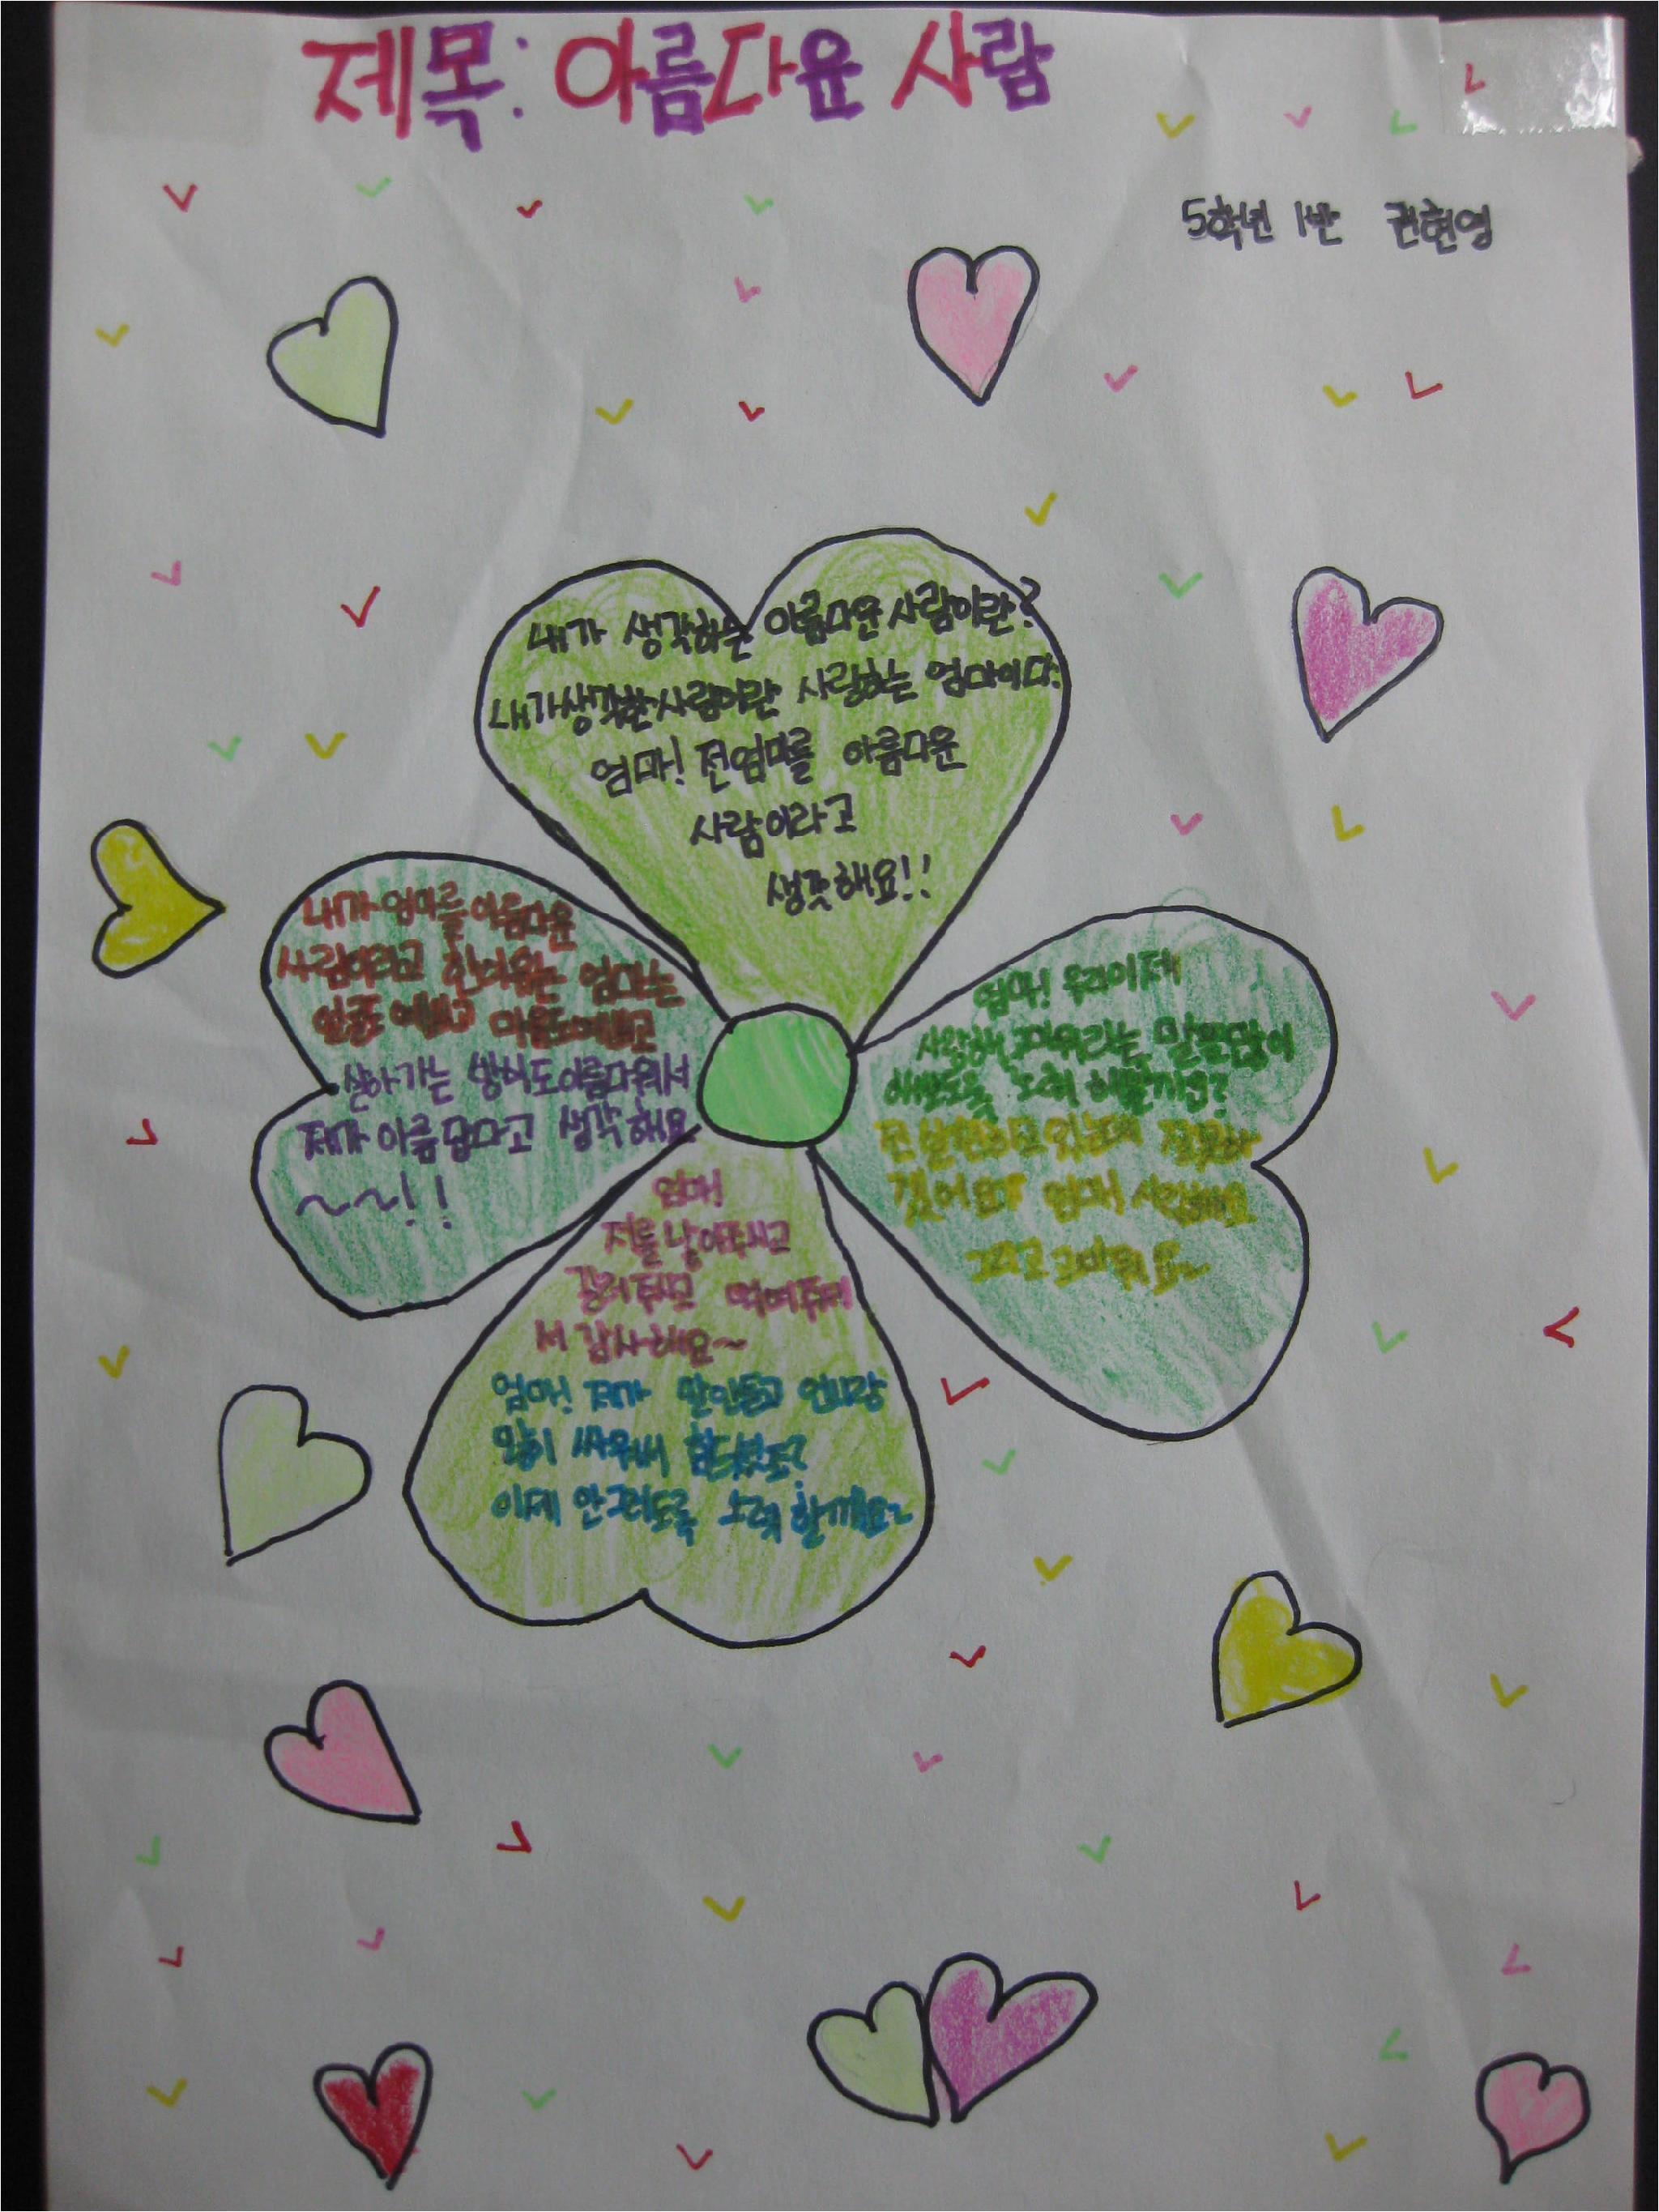 제목: 아름다운 사람
5학년 1반 권현영
내가 생각하는 아름다운 사람이란?
내가생각한사람이란 사랑하는 엄마이다.
엄마! 전엄마를 아름다운
사람이라고
생각해요!!
내가 엄마를 아름다운
사람이라고 한이유는 엄마는
얼굴도 예쁘고 마음도예쁘고
살아가는 방식도아름다워서
제가 아름답다고 생각해요
~~!!
엄마! 우리이제
사랑해, 고마워라는 말도많이
해보도록 노력 해볼까요?
전 실천하고있는데 잘못하
겠어요? 엄마! 사랑해요
그리고 고마워요~
엄마!
저를 낳아주시고
길러주시고 먹여주셔
서 감사해요~
엄마! 제가 말안듣고 언니랑
많이 싸워서 힘드셨죠?
이제 안그러도록 노력 할께요~